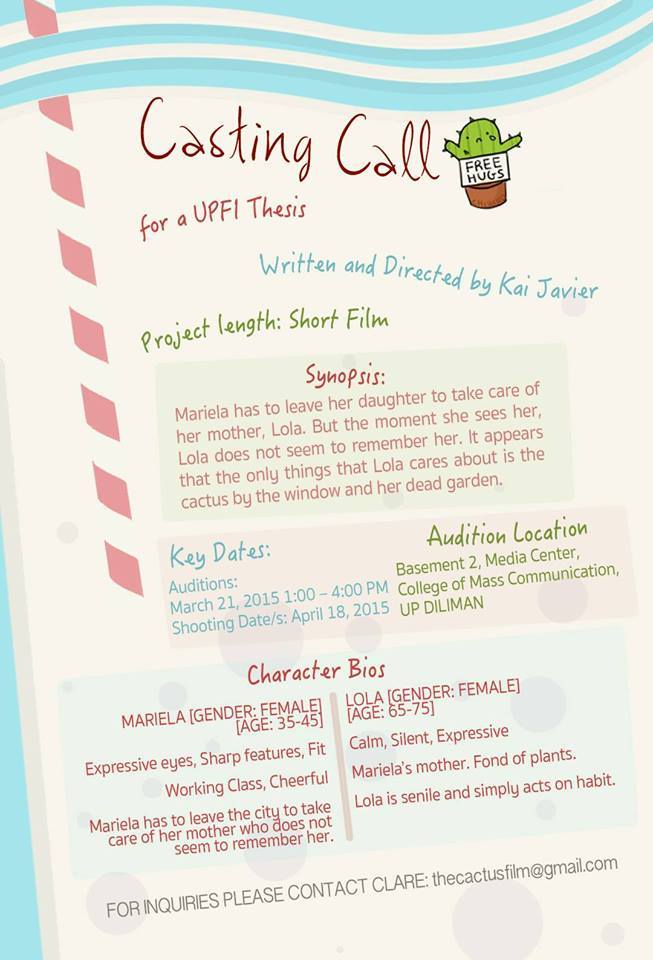 Casting Call
FREE
HUGS
for a UPFI Thesis
Written and Directed by Kai Javier
Project length: Short Film
Synopsis:
Mariela has to leave her daughter to take care of
her mother, Lola. But the moment she sees her,
Lola does not seem to remember her. It appears
that the only things that Lola cares about is the
cactus by the window and her dead garden.
Key Dates:
Auditions:
March 21, 2015 1:00 – 4:00 PM
Shooting Date/s: April 18, 2015
Audition Location
Basement 2, Media Center,
College of Mass Communication,
UP DILIMAN
Character Bios
MARIELA [GENDER: FEMALE]
[AGE: 35-45]
Expressive eyes, Sharp features, Fit
Working Class, Cheerful
Mariela has to leave the city to take
care of her mother who does not
seem to remember her.
LOLA [GENDER: FEMALE]
[AGE: 65-75]
Calm, Silent, Expressive
Mariela's mother. Fond of plants.
Lola is senile and simply acts on habit.
FOR INQUIRIES PLEASE CONTACT CLARE: thecactusfilm@gmail.com